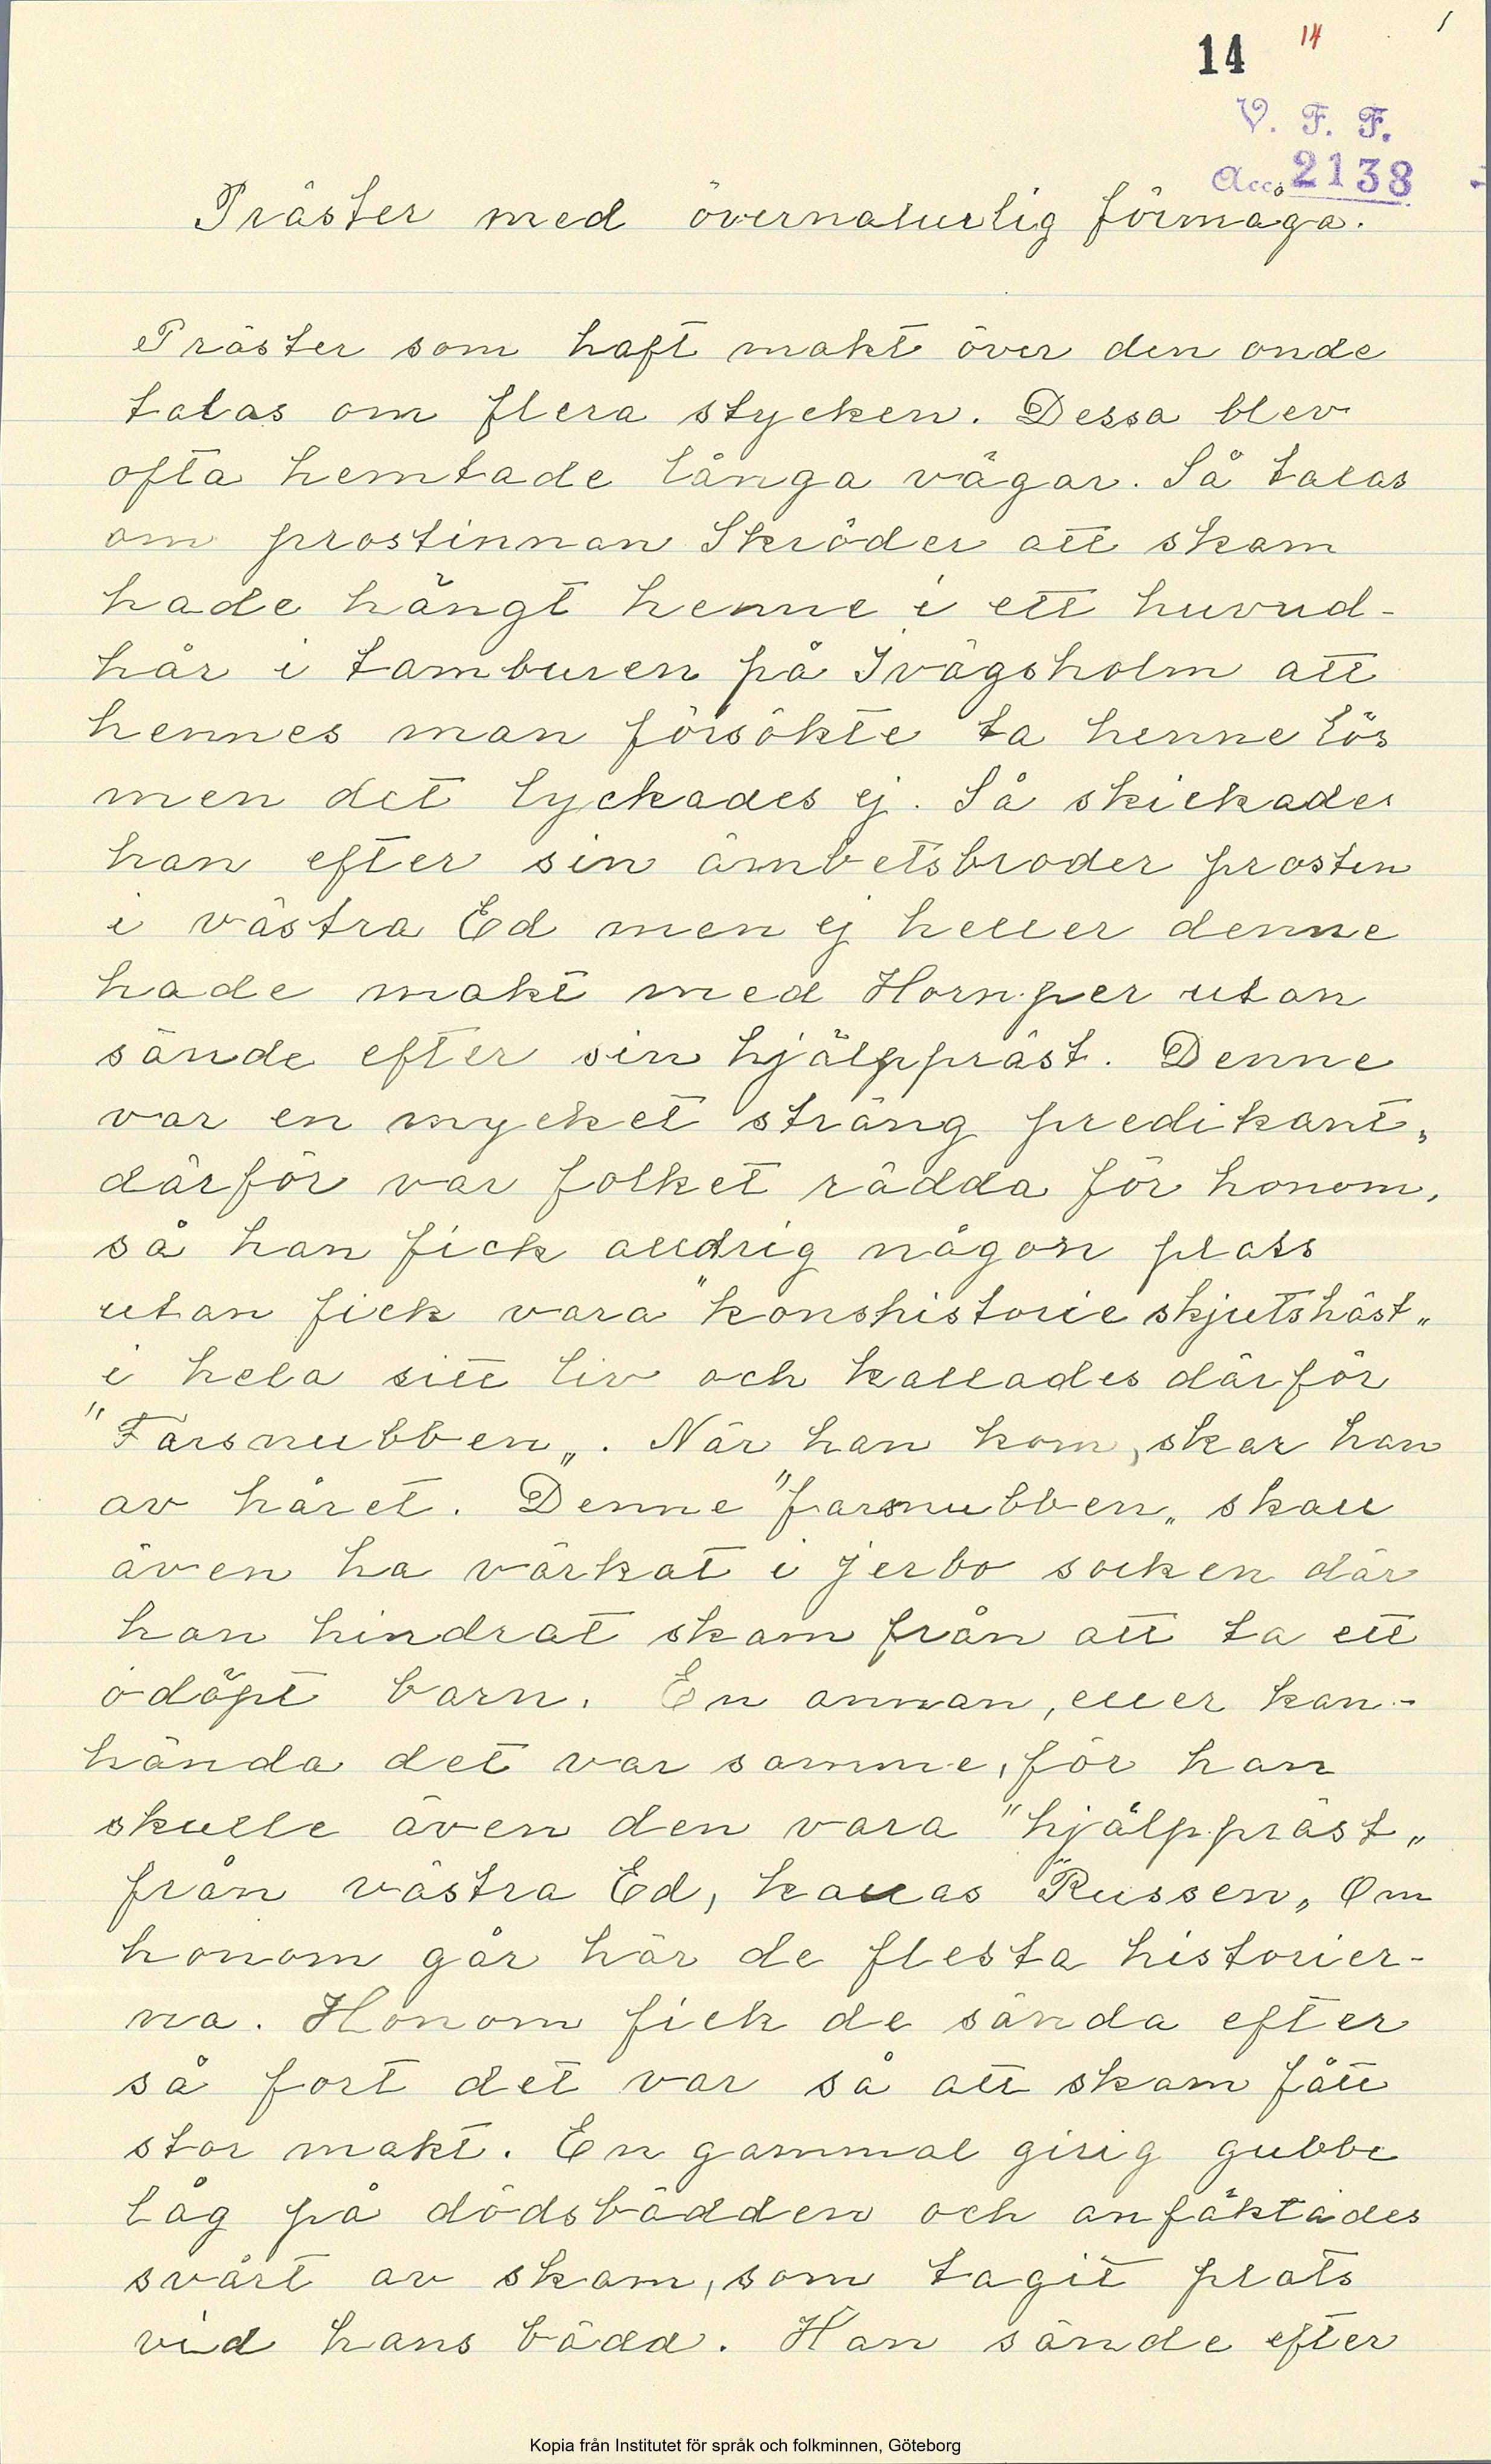 14 14 1
V. F. F.
Acc. 2138
Präster med övernaturlig förmåga.
Präster som haft makt över den onde
talas om flera stycken. Dessa blev
ofta hemtade långa vägar. Så talas
om prostinnan Skröder att skam
hade hängt henne i ett huvud-
hår i tamburen på Ivägsholm att
hennes man försökte ta henne lös
men det lyckades ej. Så skickades
han efter sin ämbetsbroder prosten
i västra Ed men ej heller denne
hade makt med Hornper utan
sände efter sin hjälppräst. Denne
var en mycket sträng predikant,
därför var folket rädda för honom,
så han fick aldrig någon plats
utan fick vara "konshistorie skjutshäst„
i hela sitt liv och kallades därför
"Farsnubben„. När han kom, skar han
av håret. Denne "farsnubben„ skall
även ha värkat i Jerbo socken där
han hindrat skam från att ta ett
odöpt barn. En annan, eller kan-
hända det var samme, för han
skulle även den vara "hjälppräst„
från västra Ed, kallas "Russen„ Om
honom går här de flesta historier-
na. Honom fick de sända efter
så fort det var så att skam fått
stor makt. En gammal girig gubbe
låg på dödsbädden och anfäktades
svårt av skam, som tagit plats
vid hans bädd. Han sände efter
Kopia från Institutet för språk och folkminnen, Göteborg